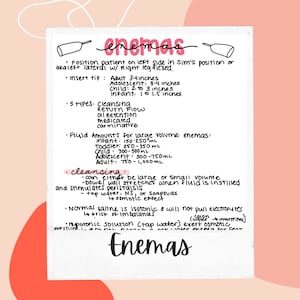 enemas
· Position patient on left side in Sim's position or
lateral w/ right leg flexed
· Insert tip: Adult 3-4 inches
Adolescent: 3-4 inches
Child: 2 to 3 inches
Infant: 1 to 1.5 inches
· 5 types: Cleansing
Return Flow
Oil retention
Medicated
Carminative
· Fluid Amounts for large volume enemas:
Infant: 150-250mL
Toddler: 250-350mL
Child: 300-500mL
Adolescent: 500-750mL
Adult: 750-1,000mL
· cleansing:
· can either be large or small volume
· Bowel wall stretches when fluid is instilled
and stimulates peristalsis
· tap water, NS, or soapsuds
↳ osmotic effect
· Normal saline is isotonic & will not pull electrolytes
↳ ↓ risk of imbalances
· Hypotonic solution (tap water) exert osmotic
Enemas